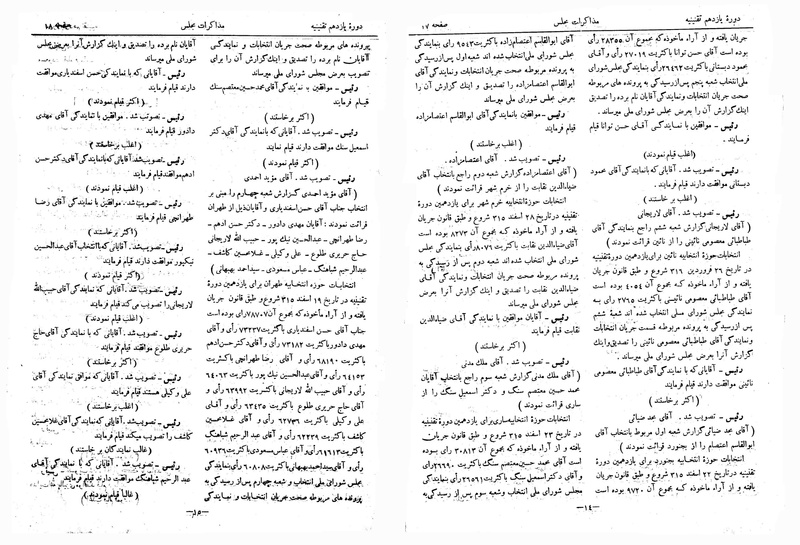 دورهٔ یازدهم تقنینیه
مذاکرات مجلس
صفحه ۱۷
جریان یافته و از آراء مأخوذه که مجموع آن ۲۸۳۵۵ رأی
بوده است آقای حسن توانا باکثریت ۲۷۰۱۹ رأی و آقای
محمود دبستانی باکثریت ۲۶۴۶۲ رأی بنمایندگی مجلس شورای
ملی انتخاب شعبه پنجم پس از رسیدگی به پرونده های مربوطه
صحت جریان انتخابات و نمایندگی آقایان نامبرده را تصدیق
اینک گزارش آن را بعرض مجلس شورای ملی میرساند.
رئیس - موافقین با نمایندگی آقای حسن توانا قیام
فرمایند.
(اغلب قیام نمودند)
رئیس - تصویب شد. آقایانی که با نمایندگی آقای محمود
دبستانی موافقند قیام فرمایند
( اغلب بر خاستند )
رئیس - تصویب شد. آقای لاریجانی
( آقای لاریجانی گزارش شعبه ششم راجع بنمایندگی آقای
طباطبائی معصومی نائینی را از نائین قرائت نمودند )
انتخابات حوزه انتخابیه نائین برای یازدهمین دورهٔ تقنینیه
در تاریخ ۲۶ فروردین ۳۱۶ شروع و طبق قانون جریان
یافته و از آراء مأخوذه که مجموع آن ۴۰۵۴ بوده است
آقای طباطبائی معصومی نائینی باکثریت ۲۷۵۵ رأی به
نمایندگی مجلس شورای ملی انتخاب شده اند شعبه ششم
پس از رسیدگی به پرونده مربوطه صحت جریان انتخابات
و نمایندگی آقای طباطبائی معصومی نائینی را تصدیق و اینک
گزارش آن را بعرض مجلس شورای ملی میرساند.
رئیس - موافقین با نمایندگی آقای طباطبائی معصومی
نائینی موافقند قیام فرمایند
( اکثر برخاستند )
رئیس - تصویب شد. آقای مجد ضیائی
( آقای مجد ضیائی گزارش شعبه اول مربوط بانتخاب آقای
ابوالقاسم اعتصام را از بجنورد قرائت نمودند )
انتخابات حوزهٔ انتخابیه بجنورد برای یازدهمین دورهٔ
تقنینیه در تاریخ ۲۲ اسفند ۳۱۵ شروع و طبق قانون جریان
یافته و از آراء مأخوذه که مجموع آن ۹۷۲۰ بوده است
آقای ابوالقاسم اعتصام زاده باکثریت ۹۵۴۳ رأی بنمایندگی
مجلس شورای ملی انتخاب شده اند شعبه اول پس از رسیدگی
به پرونده مربوطه صحت جریان انتخابات و نمایندگی آقای
ابوالقاسم اعتصام زاده را تصدیق و اینک گزارش آن را
بعرض مجلس شورای ملی میرساند
رئیس - موافقین با نمایندگی آقای ابوالقاسم اعتصام زاده
قیام فرمایند
( اکثر برخاستند )
رئیس - تصویب شد. آقای اعتصام زاده.
( آقای اعتصام زاده گزارش شعبه دوم راجع بانتخاب آقای
ضیاءالدین نقابت را از خرم شهر قرائت نمودند )
انتخابات حوزهٔ انتخابیه خرم شهر برای یازدهمین دورهٔ
تقنینیه در تاریخ ۲۸ اسفند ۳۱۵ شروع و طبق قانون جریان
یافته و از آراء مأخوذه که مجموع آن ۸۲۷۳ بوده است
آقای ضیاءالدین نقابت باکثریت ۸۰۷۱ رأی بنمایندگی مجلس
شورای ملی انتخاب شده اند شعبه دوم پس از رسیدگی به
پرونده مربوطه صحت جریان انتخابات و نمایندگی آقای
ضیاءالدین نقابت را تصدیق و اینک گزارش آنرا بعرض
مجلس شورای ملی میرساند
رئیس - آقایان موافقین با نمایندگی آقای ضیاءالدین
نقابت قیام فرمایند
( اکثر برخاستند )
رئیس - تصویب شد. آقای ملک مدنی
( آقای ملک مدنی گزارش شعبه سوم راجع بانتخاب آقایان
محمد حسین معتصم سنگ و دکتر اسمعیل سنگ را از
ساری قرائت نمودند )
انتخابات حوزهٔ انتخابیه ساری برای یازدهمین دورهٔ تقنینیه
در تاریخ ۲۳ اسفند ۳۱۵ شروع و طبق قانون جریان
یافته و از آراء مأخوذه که مجموع آن ۳۰۸۱۳ رأی بوده
است آقای محمد حسین معتصم سنگ باکثریت ۲۶۶۹۰ رأی
و آقای دکتر اسمعیل سنگ باکثریت ۲۶۵۶۱ رأی بنمایندگی
مجلس شورای ملی انتخاب و شعبه سوم پس از رسیدگی به
—۱۴—
دورهٔ یازدهم تقنینیه
مذاکرات مجلس
صفحه ۱۸
پرونده های مربوطه صحت جریان انتخابات و نمایندگی
آقایان نام برده را تصدیق و اینک گزارش آن را برای
تصویب بعرض مجلس شورای ملی میرساند
رئیس - موافقین با نمایندگی آقای محمد حسین معتصم سنگ
قیام فرمایند
( اکثر برخاستند )
رئیس - تصویب شد. آقایانی که با نمایندگی آقای دکتر
اسمعیل سنگ موافقند قیام نمایند
( اکثر قیام نمودند )
رئیس - تصویب شد. آقای مؤید احمدی
( آقای مؤید احمدی گزارش شعبه چهارم را مبنی بر
انتخاب جناب آقای حسن اسفندیاری و آقایان ذیل از طهران
قرائت نمودند : آقایان مهدی دادور - دکتر حسن ادهم -
رضا طهرانچی - عبدالحسین نیک پور - حبیب الله لاریجانی
حاج حریری طلوع - علی وکیلی - غلامحسین کاشف -
عبدالرحیم شباهنگ - عباس مسعودی - سید احمد بهبهانی )
انتخابات حوزه انتخابیه طهران برای یازدهمین دورهٔ
تقنینیه در تاریخ ۱۹ اسفند ۳۱۵ شروع و طبق قانون جریان
یافته و از آراء مأخوذه که مجموع آن ۷۸۷۰۷ رأی بوده است
جناب آقای حسن اسفندیاری باکثریت ۷۳۲۳۷ رأی و آقای
مهدی دادور باکثریت ۷۳۱۸۲ رأی و آقای دکتر حسن ادهم
باکثریت ۶۸۱۹۰ رأی و آقای رضا طهرانچی باکثریت
۶۴۱۵۳ رأی و آقای عبدالحسین نیک پور باکثریت ۶۴۰۶۳
رأی و آقای حبیب الله لاریجانی باکثریت ۶۳۹۹۲ رأی و
آقای حاج حریری طلوع باکثریت ۶۳۴۳۵ رأی و آقای
علی وکیلی باکثریت ۶۲۷۳۶ رأی و آقای غلامحسین
کاشف باکثریت ۶۲۲۳۹ رأی و آقای عبد الرحیم شباهنگ
باکثریت ۶۱۶۱۳ رأی و آقای عباس مسعودی باکثریت ۶۰۹۳۶
رأی و آقای سید احمد بهبهانی باکثریت ۶۰۸۰۸ رأی بنمایندگی
مجلس شورای ملی انتخاب و شعبه چهارم پس از رسیدگی به
پرونده های مربوطه صحت جریان انتخابات و نمایندگی
آقایان نام برده را تصدیق و اینک گزارش آنرا بعرض مجلس
شورای ملی میرساند.
رئیس - آقایانی که با نمایندگی حسن اسفندیاری موافقت
دارند قیام فرمایند
( اکثر قیام نمودند )
رئیس - تصویب شد. موافقین با نمایندگی آقای مهدی
دادور قیام فرمایند
( اغلب برخاستند )
رئیس - تصویب شد. آقایانی که با نمایندگی آقای دکتر حسن
ادهم موافقند قیام فرمایند
( اغلب قیام نمودند )
رئیس - تصویب شد. موافقین با نمایندگی آقای رضا
طهرانچی قیام فرمایند
( اکثر برخاستند )
رئیس - تصویب شد. آقایانی که با انتخاب آقای عبدالحسین
نیکپور موافقت دارند قیام فرمایند.
( اکثر قیام نمودند )
رئیس - تصویب شد. آقایانی که نمایندگی آقای حبیب الله
لاریجانی را تصویب می کند قیام فرمایند
( اغلب قیام نمودند )
رئیس - تصویب شد. آقایانی که با نمایندگی آقای حاج
حریری طلوع موافقند قیام فرمایند
( اکثر برخاستند )
رئیس - تصویب شد. آقایانی که موافق نمایندگی آقای
علی وکیلی هستند قیام فرمایند
( اغلب برخاستند )
رئیس - تصویب شد. آقایانی که نمایندگی آقای غلامحسین
کاشف را تصویب میکند قیام فرمایند
( غالب نمایندگان برخاستند )
رئیس - تصویب شد. آقایانی که با نمایندگی آقای
عبد الرحیم شباهنگ موافقت دارند قیام فرمایند
( غالباً قیام نمودند )
—۱۵—